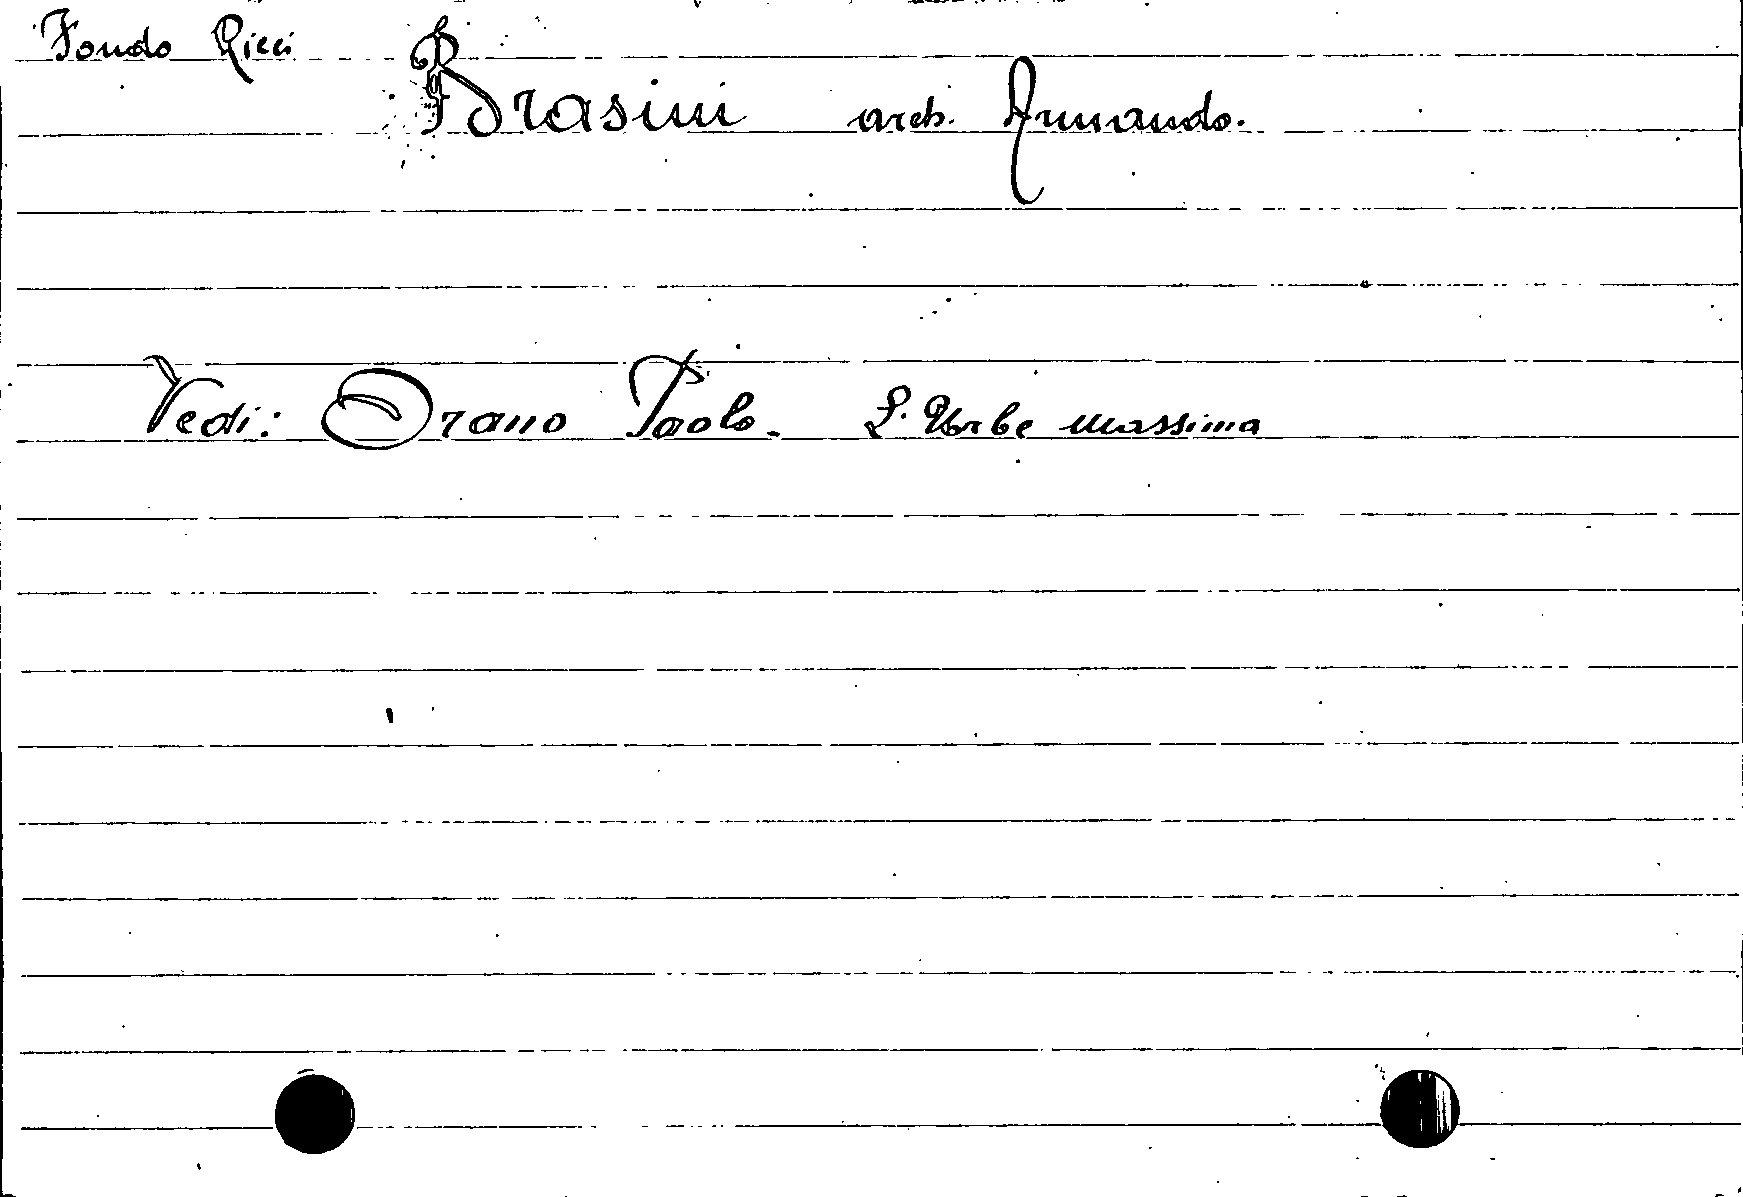 Fondo Ricci
Brasini arch. Armando.
Vedi: Orano Paolo. L'Urbe massima